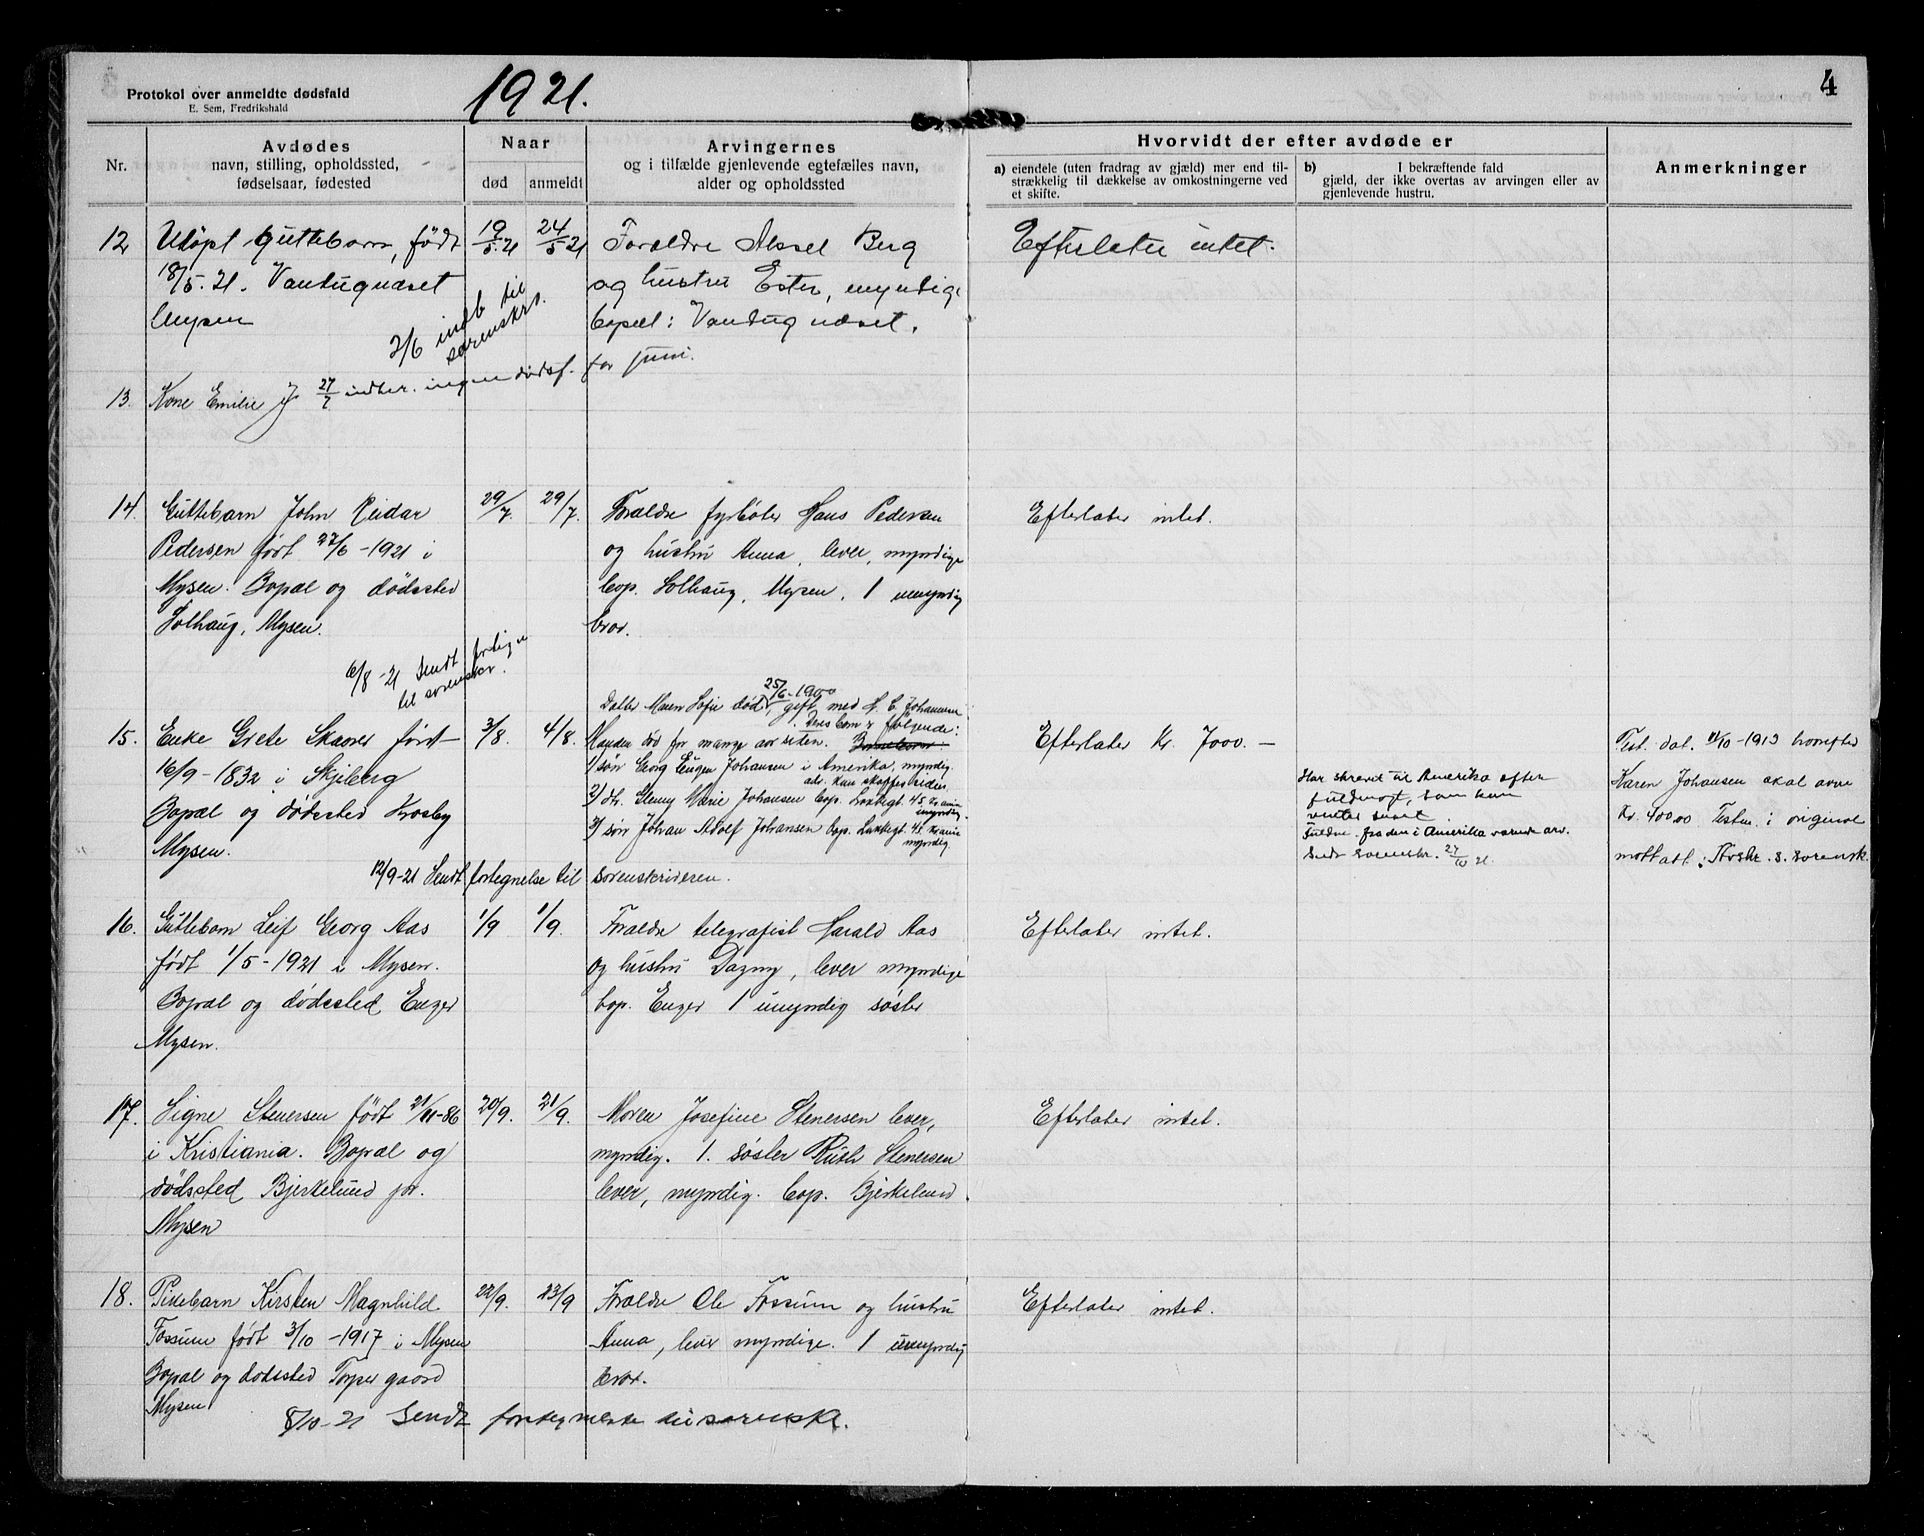 Protokol over anmeldte dødsfald
E. Sem, Fredrikshald
1921.
4
Nr.
Avdødes
navn, stilling, opholdssted,
fødselsaar, fødested
Naar
død
anmeldt
Arvingernes
og i tilfælde gjenlevende egtefælles navn,
alder og opholdssted
Hvorvidt der efter avdøde er
a) eiendele (uten fradrag av gjæld) mer end til-
strækkelig til dækkelse av omkostningerne ved
et skifte.
b) I bekræftende fald
gjæld, der ikke overtas av arvingen eller av
gjenlevende hustru.
Anmerkninger
12
Udøpt Guttebarn, født
18/5. 21.
Mysen
19/5 21
24/5 21
Forældre Aksel Berg
og hustru Ester, myndige
bopæl:
Efterlater intet.
2/6 indb til
sorenskr.
13.
Kone Emilie J
27/7 indber. ingen dødsf. for juni.
14.
Guttebarn John Reidar
Pedersen født 27/6 - 1921 i
Mysen. Bopæl og dødssted
Solhaug, Mysen.
29/7.
29/7.
Forældre fyrbøter Hans Pedersen
og hustru Anna, lever, myndige
bop. Solhaug, Mysen. 1 umyndig
bror.
Efterlater intet.
6/8 - 21 Sendt fortegn
til sorenskr.
15.
Enke Grete Skaarer født
16/9 - 1832 i Skjeberg
Bopæl og dødssted Krosby
Mysen.
3/8.
4/8.
Datter Maren Sofie død 25/6-1900, gift med H. E. Johansen
Deres barn er følgende:
Manden død for mange aar siden.
1/ søn Georg Eugen Johansen i Amerika, myndig.
adr. kan skaffes siden
2/ dtr. Glenny Marie Johansen bop. 45 Kr.ania
myndig.
3/ søn Johan Adolf Johansen bop. 45 Kr.ania
myndig.
Efterlater Kr. 7000. —
Har skrevet til Amerika efter
fuldmagt, som kan
venter snart.
Fuldm. fra den i Amerika værende arv.
Sendt sorenskr. 27/10 21.
Test. dat. 11/10 - 1913 hvorefter
Karen Johansen skal arve
Kr. 400.00 Testm. i original
mottatt:
12/9-21 Sendt fortegnelse til sorenskriveren.
16.
Guttebarn Leif Georg Aas
født 1/5 - 1921 i Mysen.
Bopæl og dødssted Enger
Mysen.
1/9
1/9.
Forældre telegrafist Harald Aas
og hustru Dagny, lever myndige
bop. Enger 1 umyndig søster
Efterlater intet.
17.
Signe Stenersen født 21/11-86
i Kristiania. Bopæl og
dødssted Bjerkelund pr.
Mysen
20/9.
21/9.
Moren Josefine Stenersen lever,
myndig. 1. søster Ruth Stenersen
lever, myndig. bop. Bjerkelund.
Efterlater intet.
18.
Pikebarn Kirsten Magnhild
Fossum født 3/10 - 1917 i Mysen
Bopæl og dødssted Torper gaard
Mysen
22/9.
23/9
Forældre Ole Fossum og hustru
Anna, lever myndige. 1 umyndig
bror.
Efterlater intet.
8/10 - 21 Sendt fortegnelse til sorenskr.